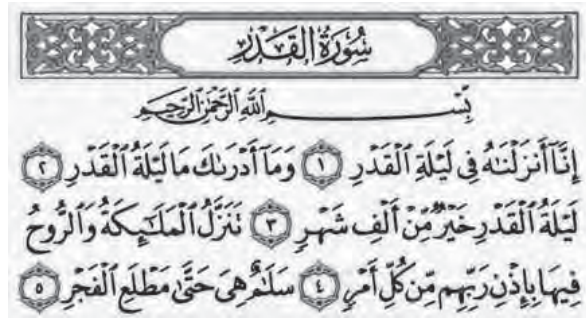 سُورَةُ القَدْرِ
بِسْمِ اللَّهِ الرَّحْمَٰنِ الرَّحِيمِ
إِنَّآ أَنزَلْنَٰهُ فِى لَيْلَةِ ٱلْقَدْرِ ١ وَمَآ أَدْرَىٰكَ مَا لَيْلَةُ ٱلْقَدْرِ ٢
لَيْلَةُ ٱلْقَدْرِ خَيْرٌ مِّنْ أَلْفِ شَهْرٍ ٣ تَنَزَّلُ ٱلْمَلَٰٓئِكَةُ وَٱلرُّوحُ
فِيهَا بِإِذْنِ رَبِّهِم مِّن كُلِّ أَمْرٍ ٤ سَلَٰمٌ هِىَ حَتَّىٰ مَطْلَعِ ٱلْفَجْرِ ٥